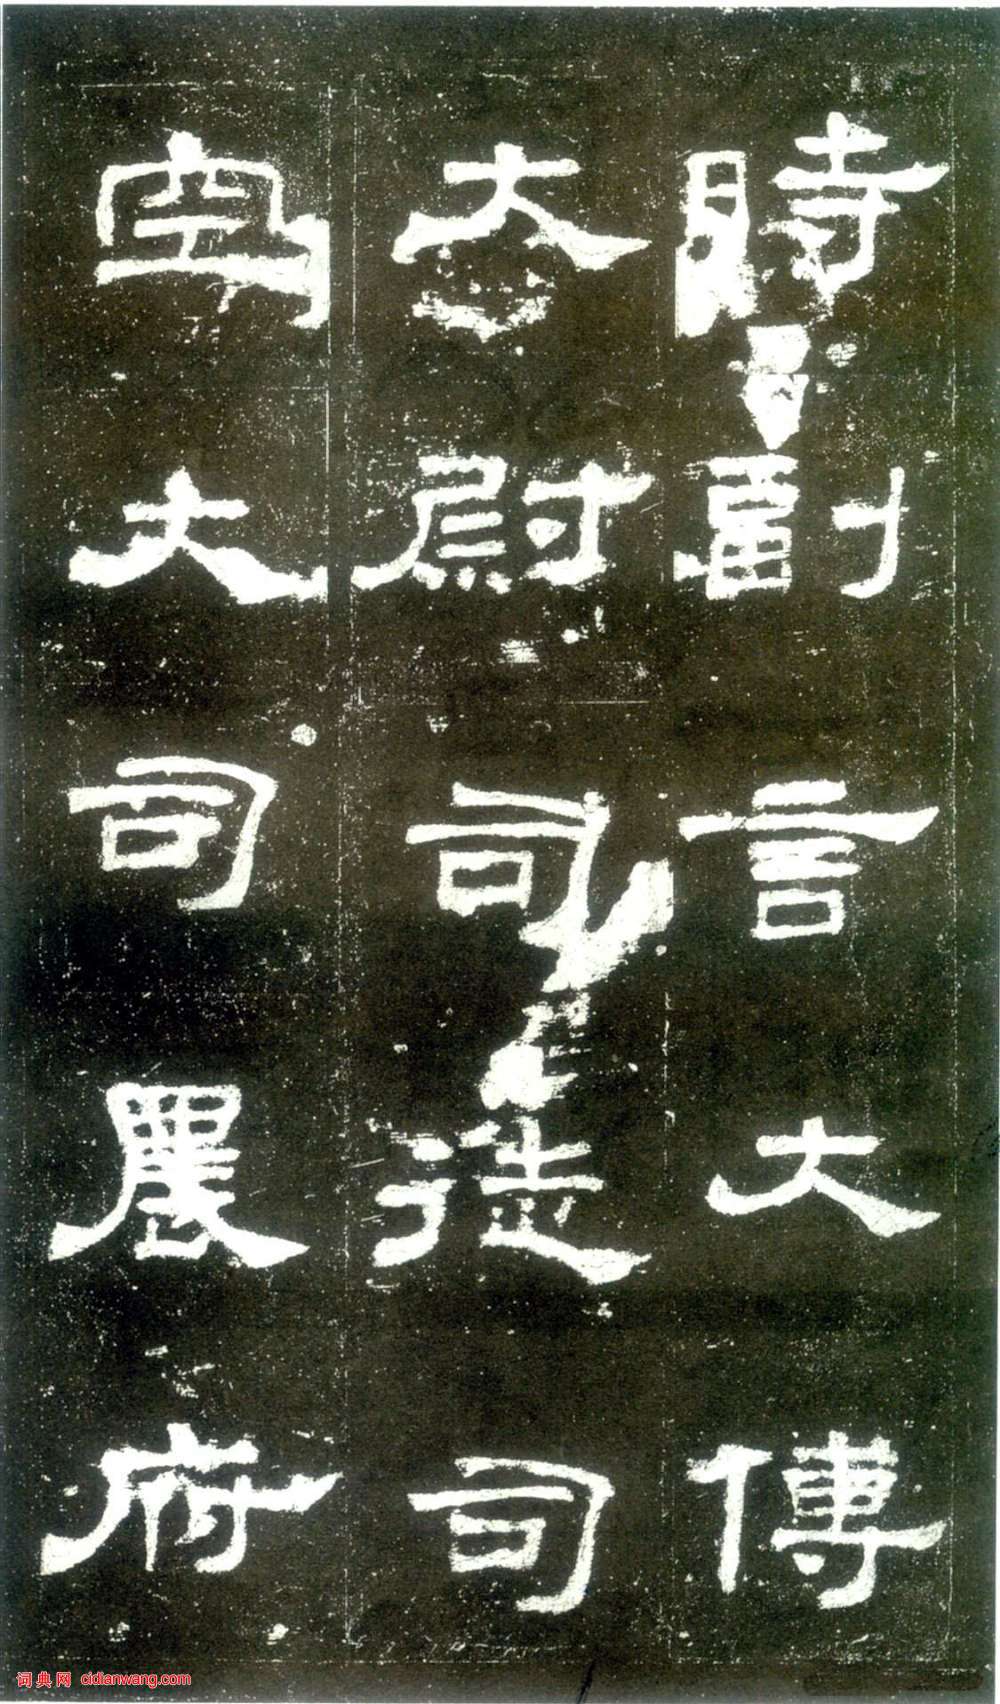 時副言大傅
大尉司徒司
空大司農府
词典网 cidianwang.com